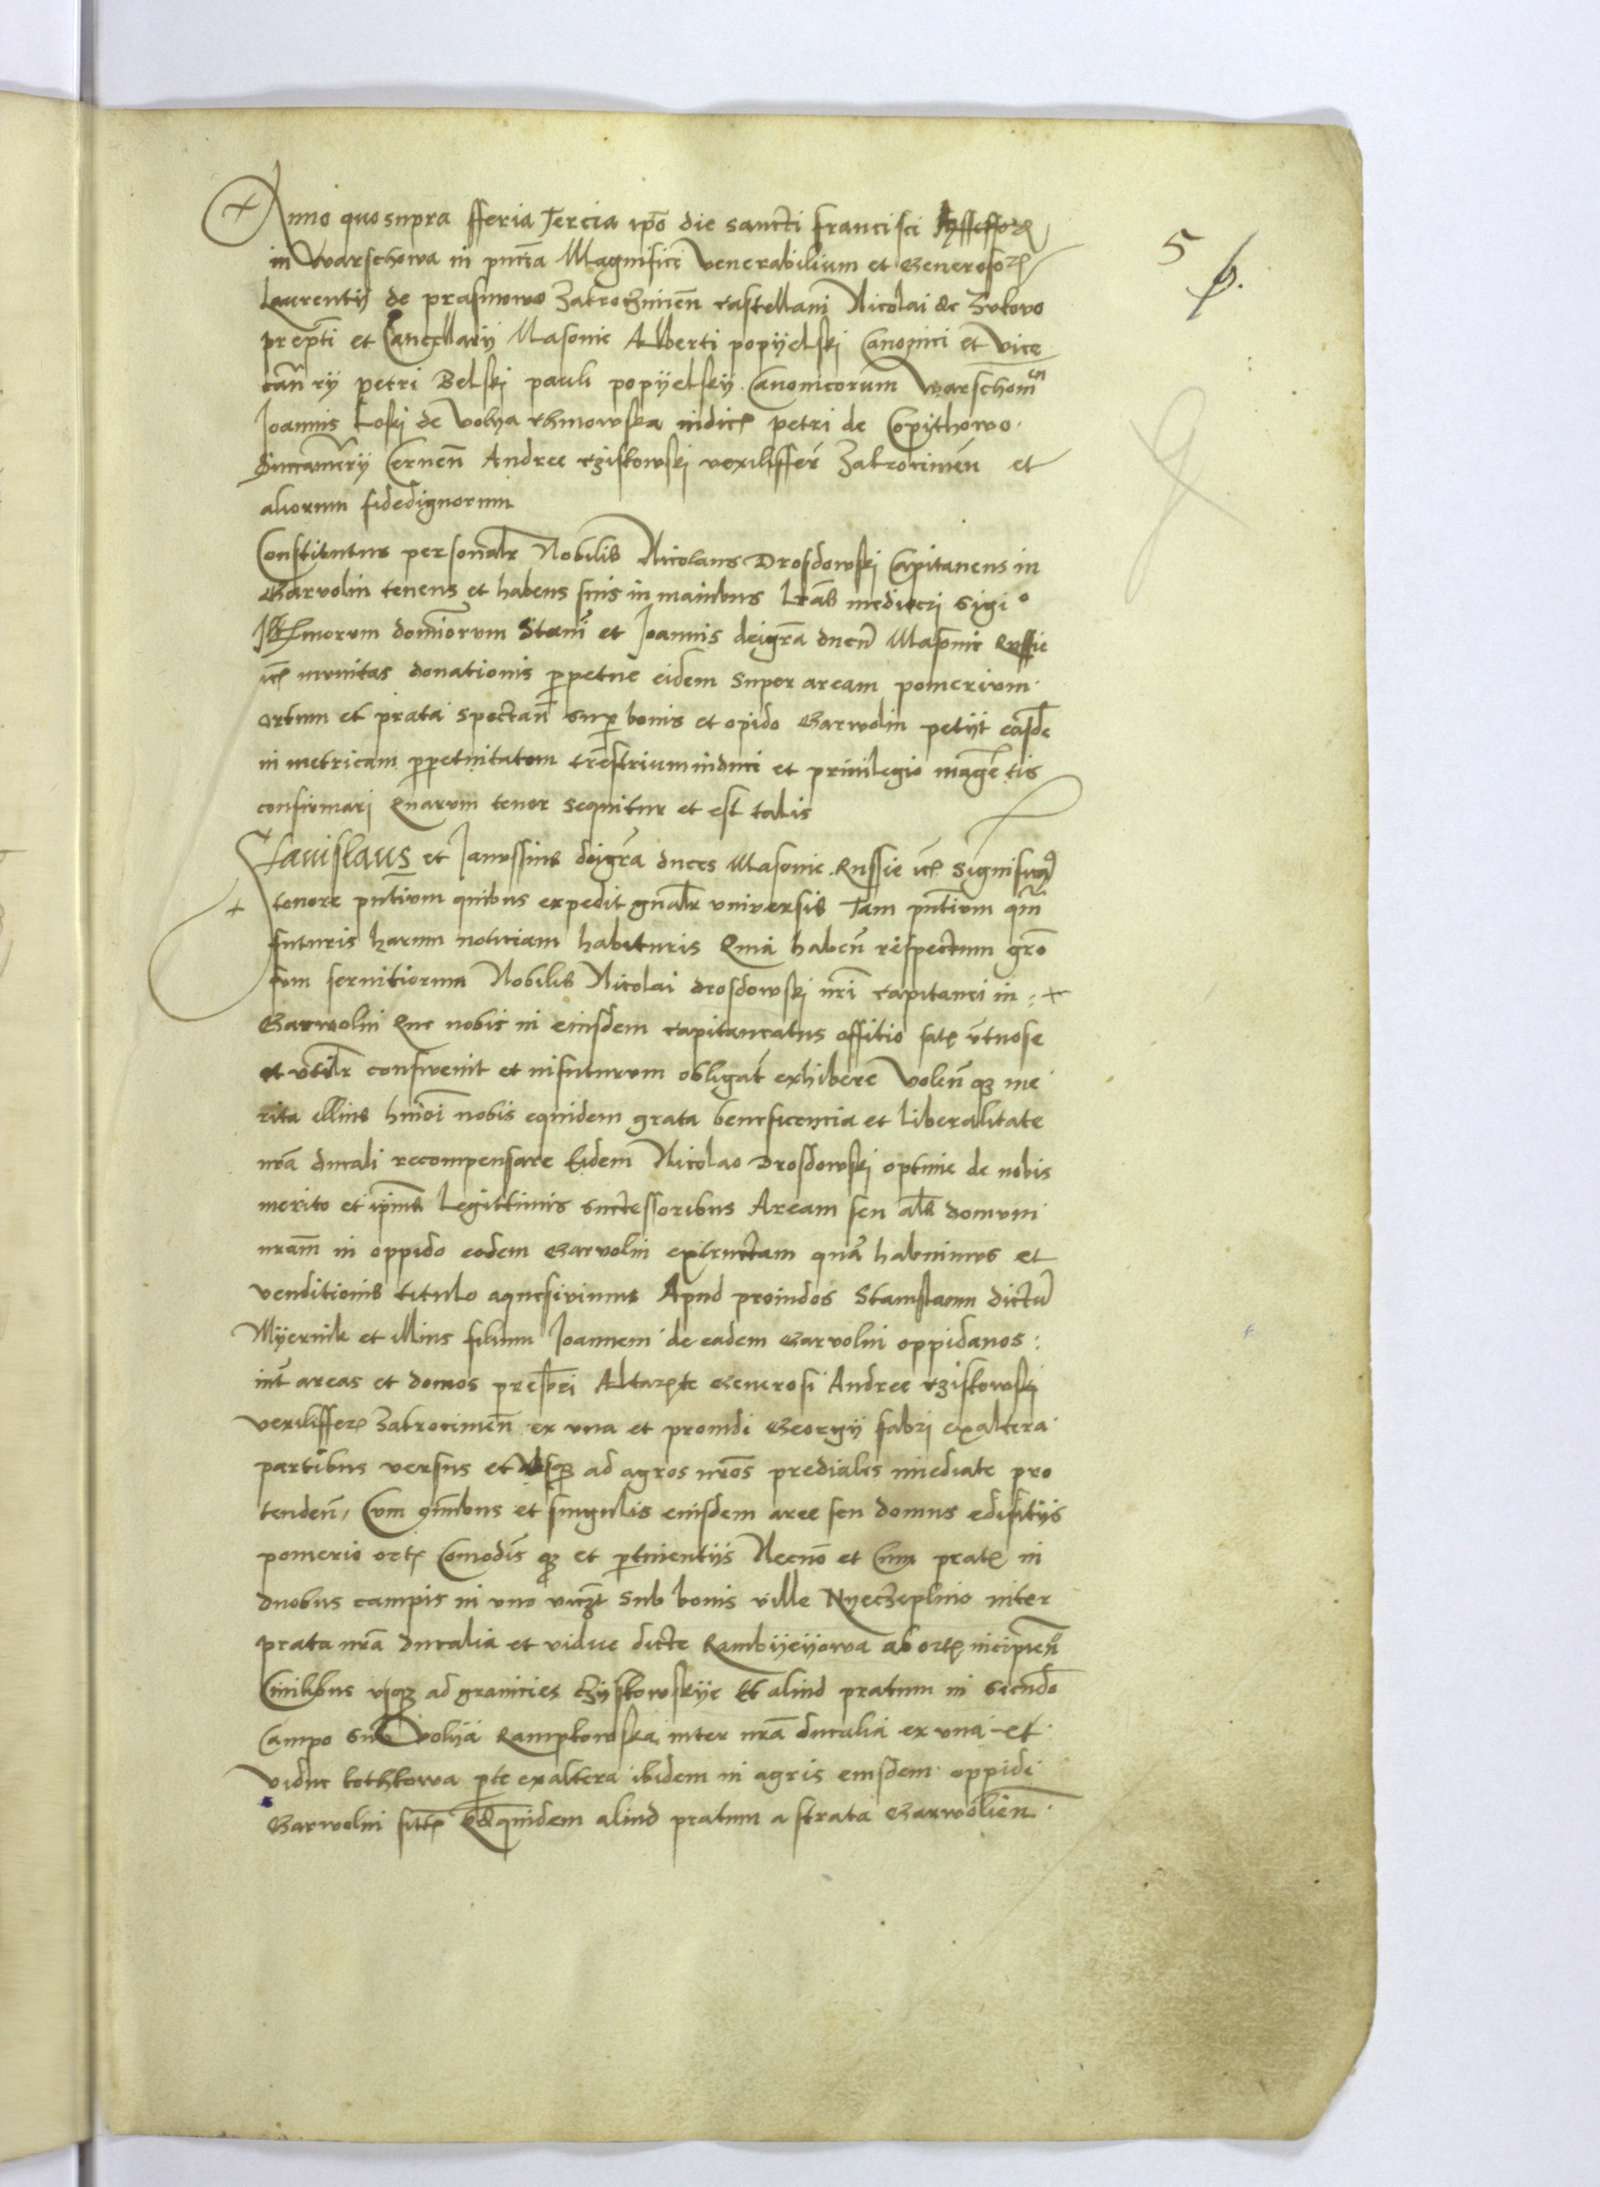 Anno quo supra fferia Tercia ip̄o die sancti francisci
in Warschowa in pn̄cia Magnifici Venerabilium et Generosoꝝ
Laurentij de prasmowo Zakroczimien̄ castellani Nicolai de Zukowo
prep̄ti et Cancellarij Masouie Alberti popijelski Canonici et vice
can̄rij petri Belski pauli popijelskij Canonicorum Warschouien̄
Joannis Loski de Volija rhmowska iudicꝭ petri de Copithowo
Succam̄rij Cernen̄ Andree rziskowski vexilliffer̄ Zakrocimen̄ et
aliorum fidedignorum
Constitutus personalr̄ Nobilis Nicolaus Drosdowski Capitaneus in
Garuolin tenens et habens suis in manibus Lr̄as mediocri sigiº
Illꝭmorum dominorum Stani et Joannis deigr̄a ducū Masouie Russie
ic̄ꝭ munitas donationis ꝑpetue eidem super aream pomerium
ortum et prata spectan̄ sup̄ bonis et opido Garwolin petijt easdē
in metricam ꝑpetuitatem tr̄estrium induci et priuilegio
confirmari Quarum tenor sequitur et est talis
Stanislaus et Janussius deigr̄a duces Masouie Russie ic̄ꝭ Significam9
tenore pn̄tium quibus expedit gn̄alr̄ vniuersis Tam pn̄tium qm̄
futuris harum notitiam habituris Quia haben̄ respectum gr̄o
sum seruitiorum Nobilis Nicolai drosdowski nr̄i capitanei in
Garwolin Que nobis in eiusdem capitaneatus offitio satꝭ v̄tuose
et vtilr̄ consueuit et infuturum obligat̄ exhibere Volen̄ qꝫ me
rita illius hm̄oi nobis equidem grata beneficencia et liberalitate
nr̄a ducali recompensare Eidem Nicolao Drosdowski optime de nobis
merito et ip̄ius Legittimis successoribus Aream seu al̄s domum
nram̄ in oppido eodem Garuolin extructam quā habuimus et
venditionis titulo aquesiuimus Apud prouidos Stanislaum dictū
Mijernik et illius filium Joannem de eadem Garuolin oppidanos
int̄ areas et domos presb̄ri Altarꝭte Generosi Andree rziskowski
vexillifferꝭ Zakrocimen̄ ex una et prouidi Georgij fabri exaltera
partibus versus et vsqꝫ ad agros nr̄os prediales imediate pro
tenden̄ Cum om̄ibus et singulis eiusdem aree seu domus edifitijs
pomerio ortꝭ Comodis qꝫ et ꝑtinentijs Necnō et Cum pratꝭ in
duobus campis in vno vicꝫt Sub bonis ville Nyeczeplino inter
prata nr̄a ducalia et vidue dicte Rambijeijowa ab ortꝭ incipien̄
Ciuilibus vsqꝫ ad granicies Czijskowskije Et aliud pratum in secundo
Campo sub Volija Rampkowska inter nr̄a ducalia ex vna et
vidue kothkowa ꝑte exaltera ibidem in agris eiusdem oppidi
Garwolin sittꝭ aliud pratum a strata Garwolien̄
5
6.